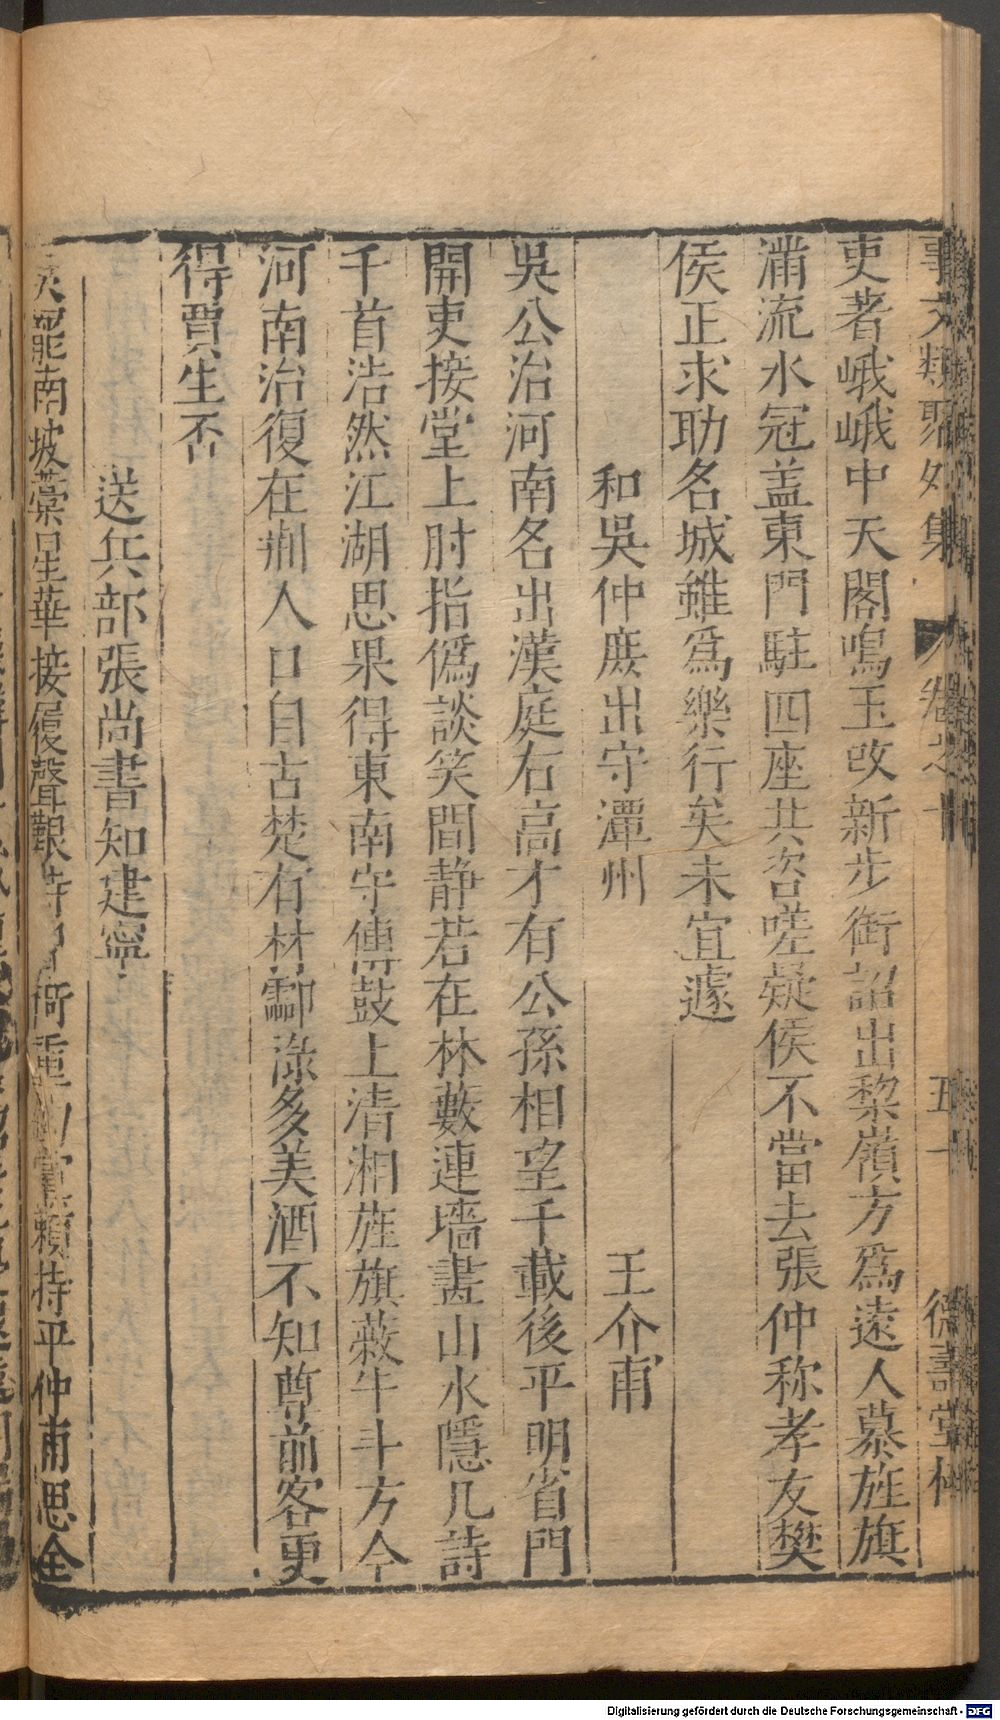 事文類聚外集 卷之十 五十 德壽堂梓
吏著峨峨中天閣鳴玉改新步銜詔出黎嶺方爲遠人慕旌旗
滿流水冠盖東門駐四座共咨嗟疑侯不當去張仲称孝友樊
侯正求助名城雖爲樂行矣未宜遽
和吳仲庻出守潭州 王介甫
吳公治河南名出漢庭右高才有公孫相望千載後平明省門
開吏接堂上肘指僞談笑間静若在林藪連墻畫山水隱几詩
千首浩然江湖思果得東南守傳鼓上清湘旌旗蔽牛斗方今
河南治復在荆人口自古楚有材酃淥多美酒不知尊前客更
得賈生否
送兵部張尚書知建寧
罷南坡藁星華接履聲艱 持平仲甫思全
Digitalisierung gefördert durch die Deutsche Forschungsgemeinschaft - DFG